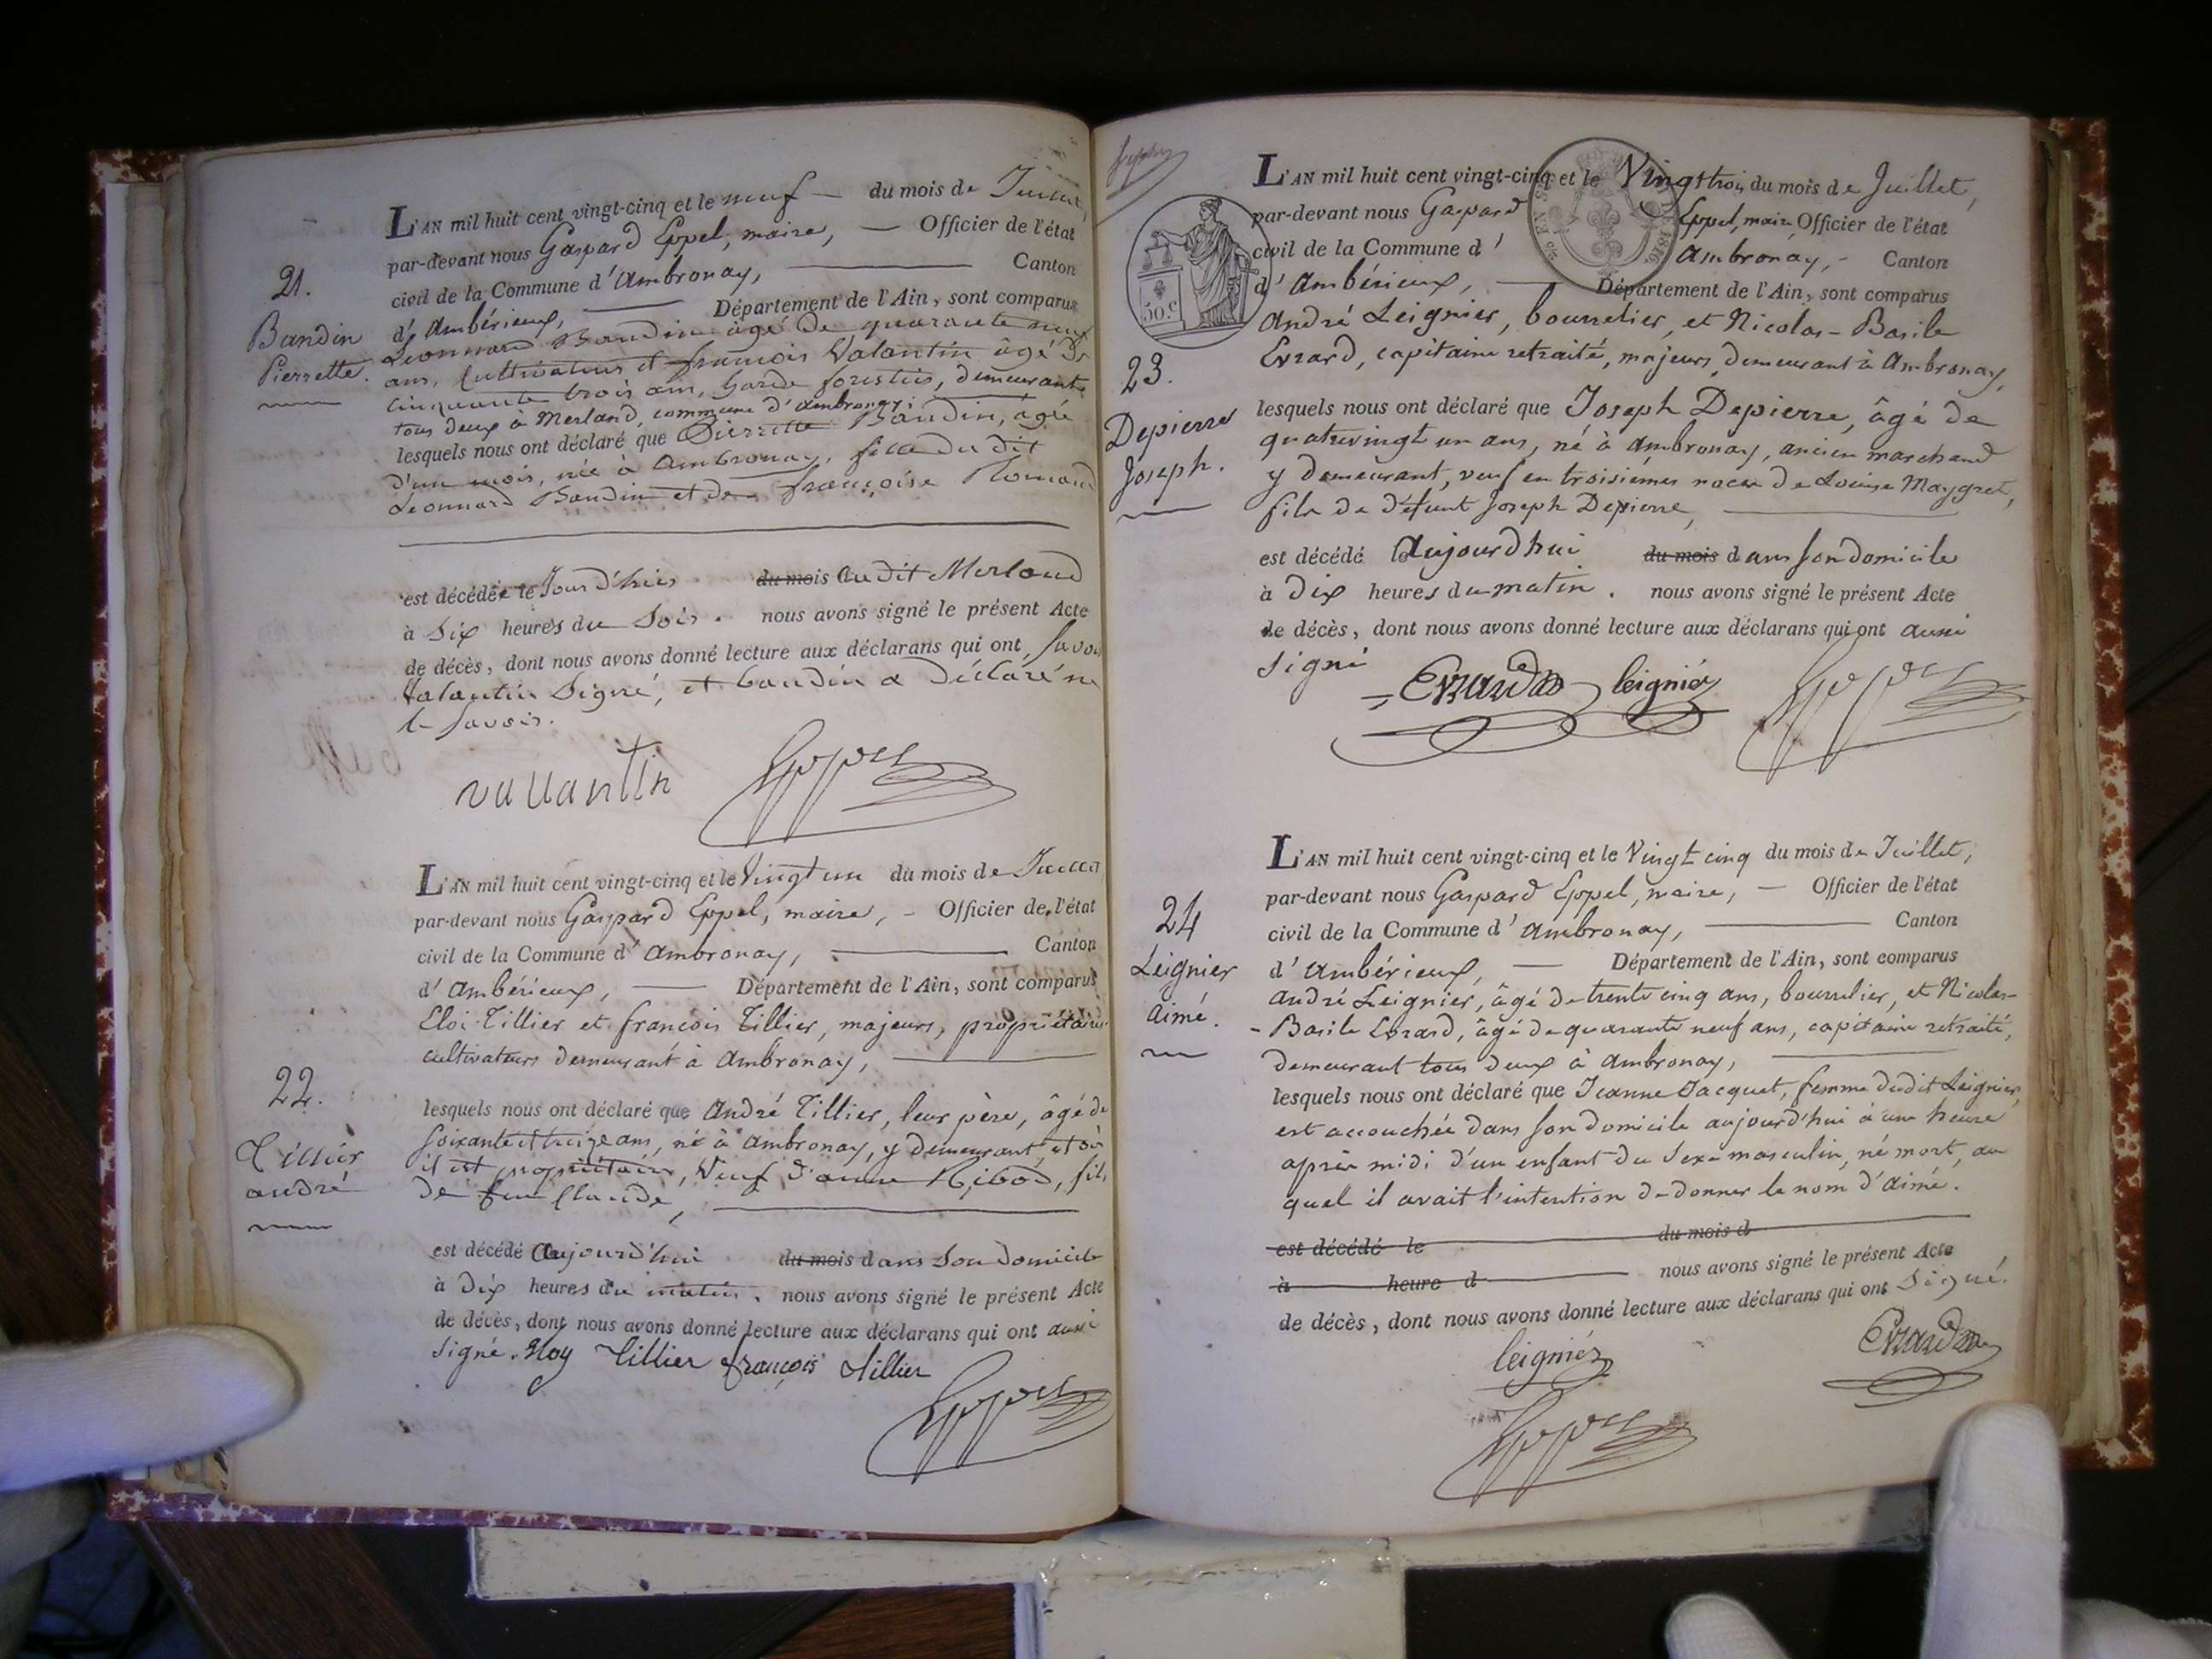 L'AN mil huit cent vingt-cinq et le neuf — du mois de Juillet,
par-devant nous Gaspard Eppel, maire, — Officier de l'état
civil de la Commune d'Ambronay, — Canton
d'Ambérieux, — Département de l'Ain, sont comparus
Léonnard Baudin âgé de quarante neuf
ans, cultivateur et françois Valantin âgé de
cinquante trois ans, garde forestier, demeurants
tous deux à Merland, commune d'ambronay;
lesquels nous ont déclaré que Pierrette Baudin, âgée
d'un mois, née à Ambronay, fille du dit
Léonnard Baudin et de françoise
est décédée le Jour d'hier du mois audit Merland
à Six heures du Soir. nous avons signé le présent Acte
de décès, dont nous avons donné lecture aux déclarans qui ont, Savoir
Valantin Signé, et baudin a déclaré ne
le Savoir.
21.
Baudin
Pierrette.
vallantin Eppel
L'AN mil huit cent vingt-cinq et le Vingt un du mois de Juillet
par-devant nous Gaspard Eppel, maire, - Officier de l'état
civil de la Commune d'Ambronay, — Canton
d'Ambérieux, — Département de l'Ain, sont comparus
Eloi Tillier et françois Tillier, majeurs, propriétaires
cultivateurs demeurant à Ambronay, —
22.
Tillier
andré
lesquels nous ont déclaré que André Tillier, leur père, âgé de
soixante et treize ans, né à Ambronay, y demeurant, et où
il est propriétaire, Veuf d'anne Ribod, fils
de feu Claude, —
est décédé Aujourd'hui du mois dans Son domicile
à Dix heures du matin. nous avons signé le présent Acte
de décès, dont nous avons donné lecture aux déclarans qui ont aussi
signé. Tillier françois tillier
Eppel
L'AN mil huit cent vingt-cinq et le Vingt trois du mois de Juillet,
par-devant nous Gaspard Eppel, maire Officier de l'état
civil de la Commune d'Ambronay, - Canton
d'Ambérieux, — Département de l'Ain, sont comparus
André Leignier, bourrelier, et Nicolas-Basile
Evrard, capitaine retraité, majeurs, demeurant à Ambronay,
50.C
1816
23.
Depierre
Joseph.
lesquels nous ont déclaré que Joseph Depierre, âgé de
quatrevingt un ans, né à Ambronay, ancien marchand
y demeurant, veuf en troisièmes noces de Louise Maygret,
fils de défunt Joseph Depierre, —
est décédé le Aujourd'hui du mois dans son domicile
à Dix heures du matin. nous avons signé le présent Acte
de décès, dont nous avons donné lecture aux déclarans qui ont aussi
signé
Evrard leignier Eppel
L'AN mil huit cent vingt-cinq et le Vingt cinq du mois de Juillet,
par-devant nous Gaspard Eppel, maire, — Officier de l'état
civil de la Commune d'Ambronay, — Canton
d'Ambérieux, — Département de l'Ain, sont comparus
André Leignier, âgé de trente cinq ans, bourrelier, et Nicolas-
- Basile Evrard, âgé de quarante neuf ans, capitaine retraité,
demeurant tous deux à Ambronay, —
24
Leignier
Aimé.
lesquels nous ont déclaré que Jeanne Jacquet, femme dudit Leignier,
est accouchée dans son domicile aujourd'hui à une heure
après midi d'un enfant du Sexe masculin, né mort, au
quel il avait l'intention de donner le nom d'Aimé.
est décédé le du mois d
à heure d nous avons signé le présent Acte
de décès, dont nous avons donné lecture aux déclarans qui ont Signé.
leignier Evrard
Eppel